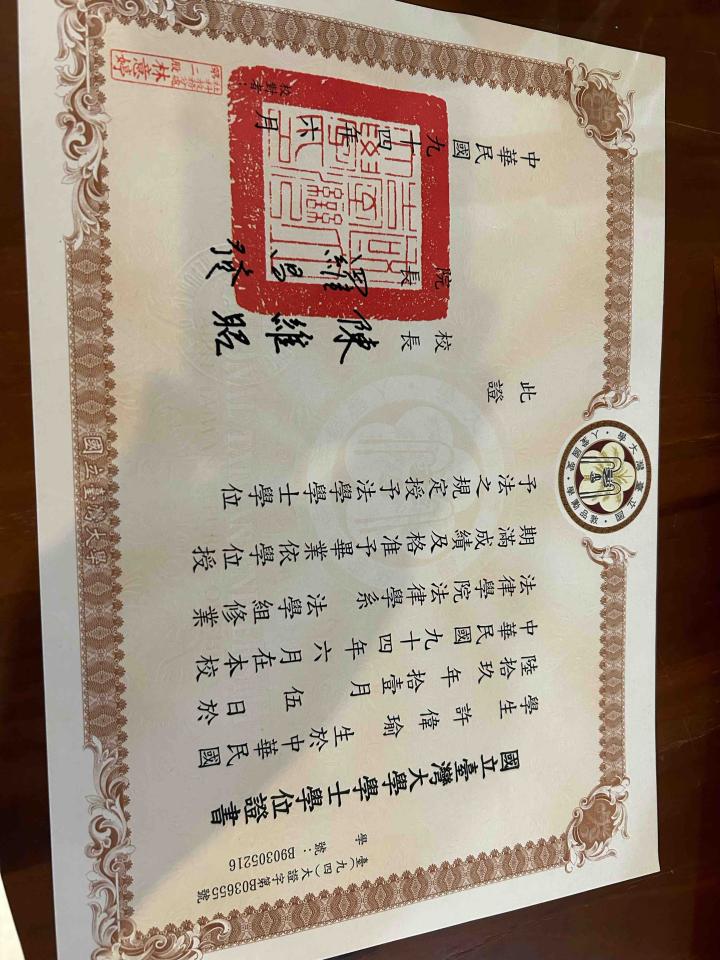 臺(九四)大證字第B03655號
學號：B90305216
國立臺灣大學學士學位證書
學生 許偉瑜 生於中華民國
陸拾玖年拾壹月伍日於
中華民國九十四年六月在本校
法律學院法律學系 法學組修業
期滿成績及格准予畢業依學位授
予法之規定授予法學學士學位
此證
校長 陳維昭
院長 羅昌發
中華民國九十四年六月
校對者：
林意婷
國立臺灣大學